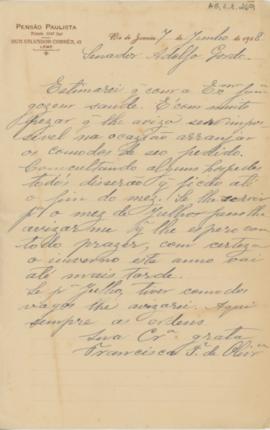 PENSÃO PAULISTA
RUA SALVADOR CORRÊA, 43
LEME
Rio de Janeiro 7 de Junho de 1928
Senador Adolfo Gordo.
Estimarei q com a Exma
gozem saude. E' com muito
pezar q lhe aviso ser impos-
sivel na ocazião arranjar
os comodos de seo pedido.
Concultando alguns hospedes
todos disserão q ficão até
o fim do mez. Se lhe servir
pa o mez de Julho, pode
avizar me q lhe espero com
todo prazer, com certeza
o inverno este anno vai
até mais tarde.
Se pa Julho, tiver comodos
vagos lhe avizarei. Aqui
sempre as ordens
Sua Cra grata
Francisca Pa de Olivra